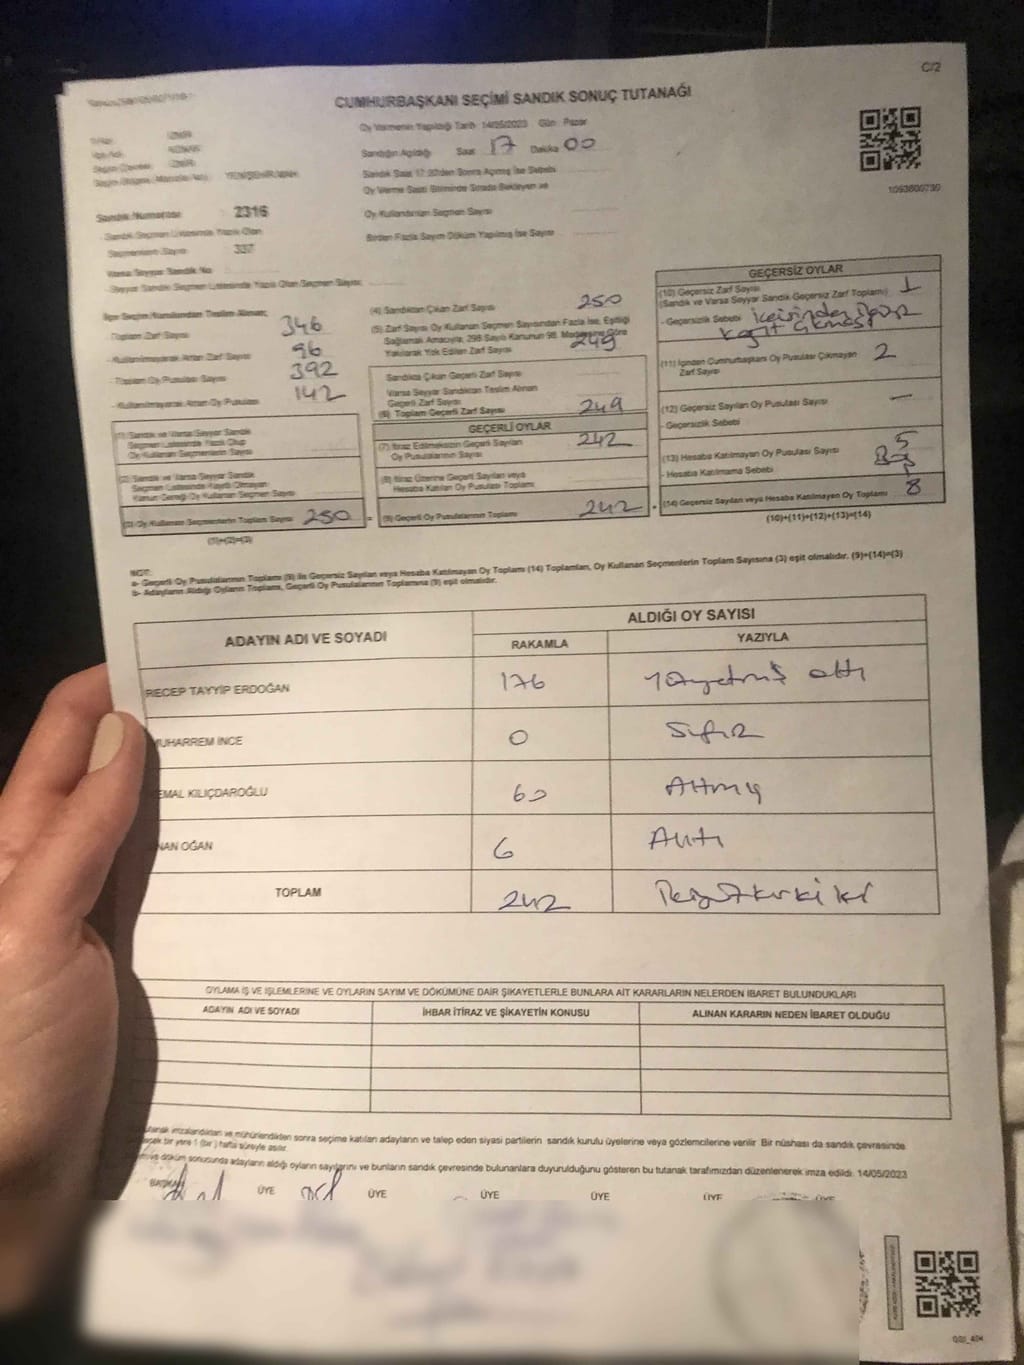 C/2
CUMHURBAŞKANI SEÇİMİ SANDIK SONUÇ TUTANAĞI
Oy Vermenin Yapıldığı Tarih 14/05/2023 Gün Pazar
Sandığın Açıldığı Saat 17 Dakika 00
Oy Verme Saati Bitiminde Sırada Bekleyen ve
Oy Kullandırılan Seçmen Sayısı
Birden Fazla Sayım Döküm Yapılmış İse Sayısı
YENİŞEHİR MAH.
1093800730
Sandık Numarası 2316
Sandık Seçmen Listesinde Yazılı Olan
Seçmenlerin Sayısı 337
Varsa Seyyar Sandık No
Seyyar Sandık Seçmen Listesinde Yazılı Olan Seçmen Sayısı
İlçe Seçim Kurulundan Teslim Alınan;
Toplam Zarf Sayısı 346
- Kullanılmayarak Artan Zarf Sayısı 96
- Toplam Oy Pusulası Sayısı 392
- Kullanılmayarak Artan Oy Pusulası 142
(1) Sandık ve Varsa Seyyar Sandık
Seçmen Listesinde Yazılı Olup
Oy Kullanan Seçmenlerin Sayısı
(2) Sandık ve Varsa Seyyar Sandık
Seçmen Listesinde Kayıtlı Olmayan
Kanun Gereği Oy Kullanan Seçmen Sayısı
(3) Oy Kullanan Seçmenlerin Toplam Sayısı 250
(1)+(2)=(3)
(4) Sandıktan Çıkan Zarf Sayısı 250
(5) Zarf Sayısı Oy Kullanan Seçmen Sayısından Fazla İse, Eşitliği
Sağlamak Amacıyla, 298 Sayılı Kanunun 98. Maddesine Göre
Yakılarak Yok Edilen Zarf Sayısı 249
Sandıkta Çıkan Geçerli Zarf Sayısı
Varsa Seyyar Sandıktan Teslim Alınan
Geçerli Zarf Sayısı
(6) Toplam Geçerli Zarf Sayısı 249
GEÇERLİ OYLAR
(7) İtiraz Edilmeksizin Geçerli Sayılan
Oy Pusulalarının Sayısı 242
(8) İtiraz Üzerine Geçerli Sayılan veya
Hesaba Katılan Oy Pusulası Toplamı
(9) Geçerli Oy Pusulalarının Toplamı 242
GEÇERSİZ OYLAR
(10) Geçersiz Zarf Sayısı
(Sandık ve Varsa Seyyar Sandık Geçersiz Zarf Toplamı) 1
- Geçersizlik Sebebi
(11) İçinden Cumhurbaşkanı Oy Pusulası Çıkmayan
Zarf Sayısı 2
(12) Geçersiz Sayılan Oy Pusulası Sayısı —
- Geçersizlik Sebebi
(13) Hesaba Katılmayan Oy Pusulası Sayısı 5
- Hesaba Katılmama Sebebi
(14) Geçersiz Sayılan veya Hesaba Katılmayan Oy Toplamı 8
(10)+(11)+(12)+(13)=(14)
NOT:
a- Geçerli Oy Pusulalarının Toplamı (9) ile Geçersiz Sayılan veya Hesaba Katılmayan Oy Toplamı (14) Toplamları, Oy Kullanan Seçmenlerin Toplam Sayısına (3) eşit olmalıdır. (9)+(14)=(3)
b- Adayların Aldığı Oyların Toplamı, Geçerli Oy Pusulalarının Toplamına (9) eşit olmalıdır.
ADAYIN ADI VE SOYADI ALDIĞI OY SAYISI
RAKAMLA YAZIYLA
RECEP TAYYİP ERDOĞAN 176 yüzyetmiş altı
MUHARREM İNCE 0 Sıfır
EMAL KILIÇDAROĞLU 60 Altmış
NAN OĞAN 6 Altı
TOPLAM 242 ikiyüzkırkiki
OYLAMA İŞ VE İŞLEMLERİNE VE OYLARIN SAYIM VE DÖKÜMÜNE DAİR ŞİKAYETLERLE BUNLARA AİT KARARLARIN NELERDEN İBARET BULUNDUKLARI
ADAYIN ADI VE SOYADI İHBAR İTİRAZ VE ŞİKAYETİN KONUSU ALINAN KARARIN NEDEN İBARET OLDUĞU
tutanak imzalandıktan ve mühürlendikten sonra seçime katılan adayların ve talep eden siyasi partilerin sandık kurulu üyelerine veya gözlemcilerine verilir. Bir nüshası da sandık çevresinde
bir yere 1 (bir) hafta süreyle asılır.
ve döküm sonucunda adayların aldığı oyların sayılarını ve bunların sandık çevresinde bulunanlara duyurulduğunu gösteren bu tutanak tarafımızdan düzenlenerek imza edildi. 14/05/2023
BAŞKAN ÜYE ÜYE ÜYE ÜYE ÜYE ÜYE